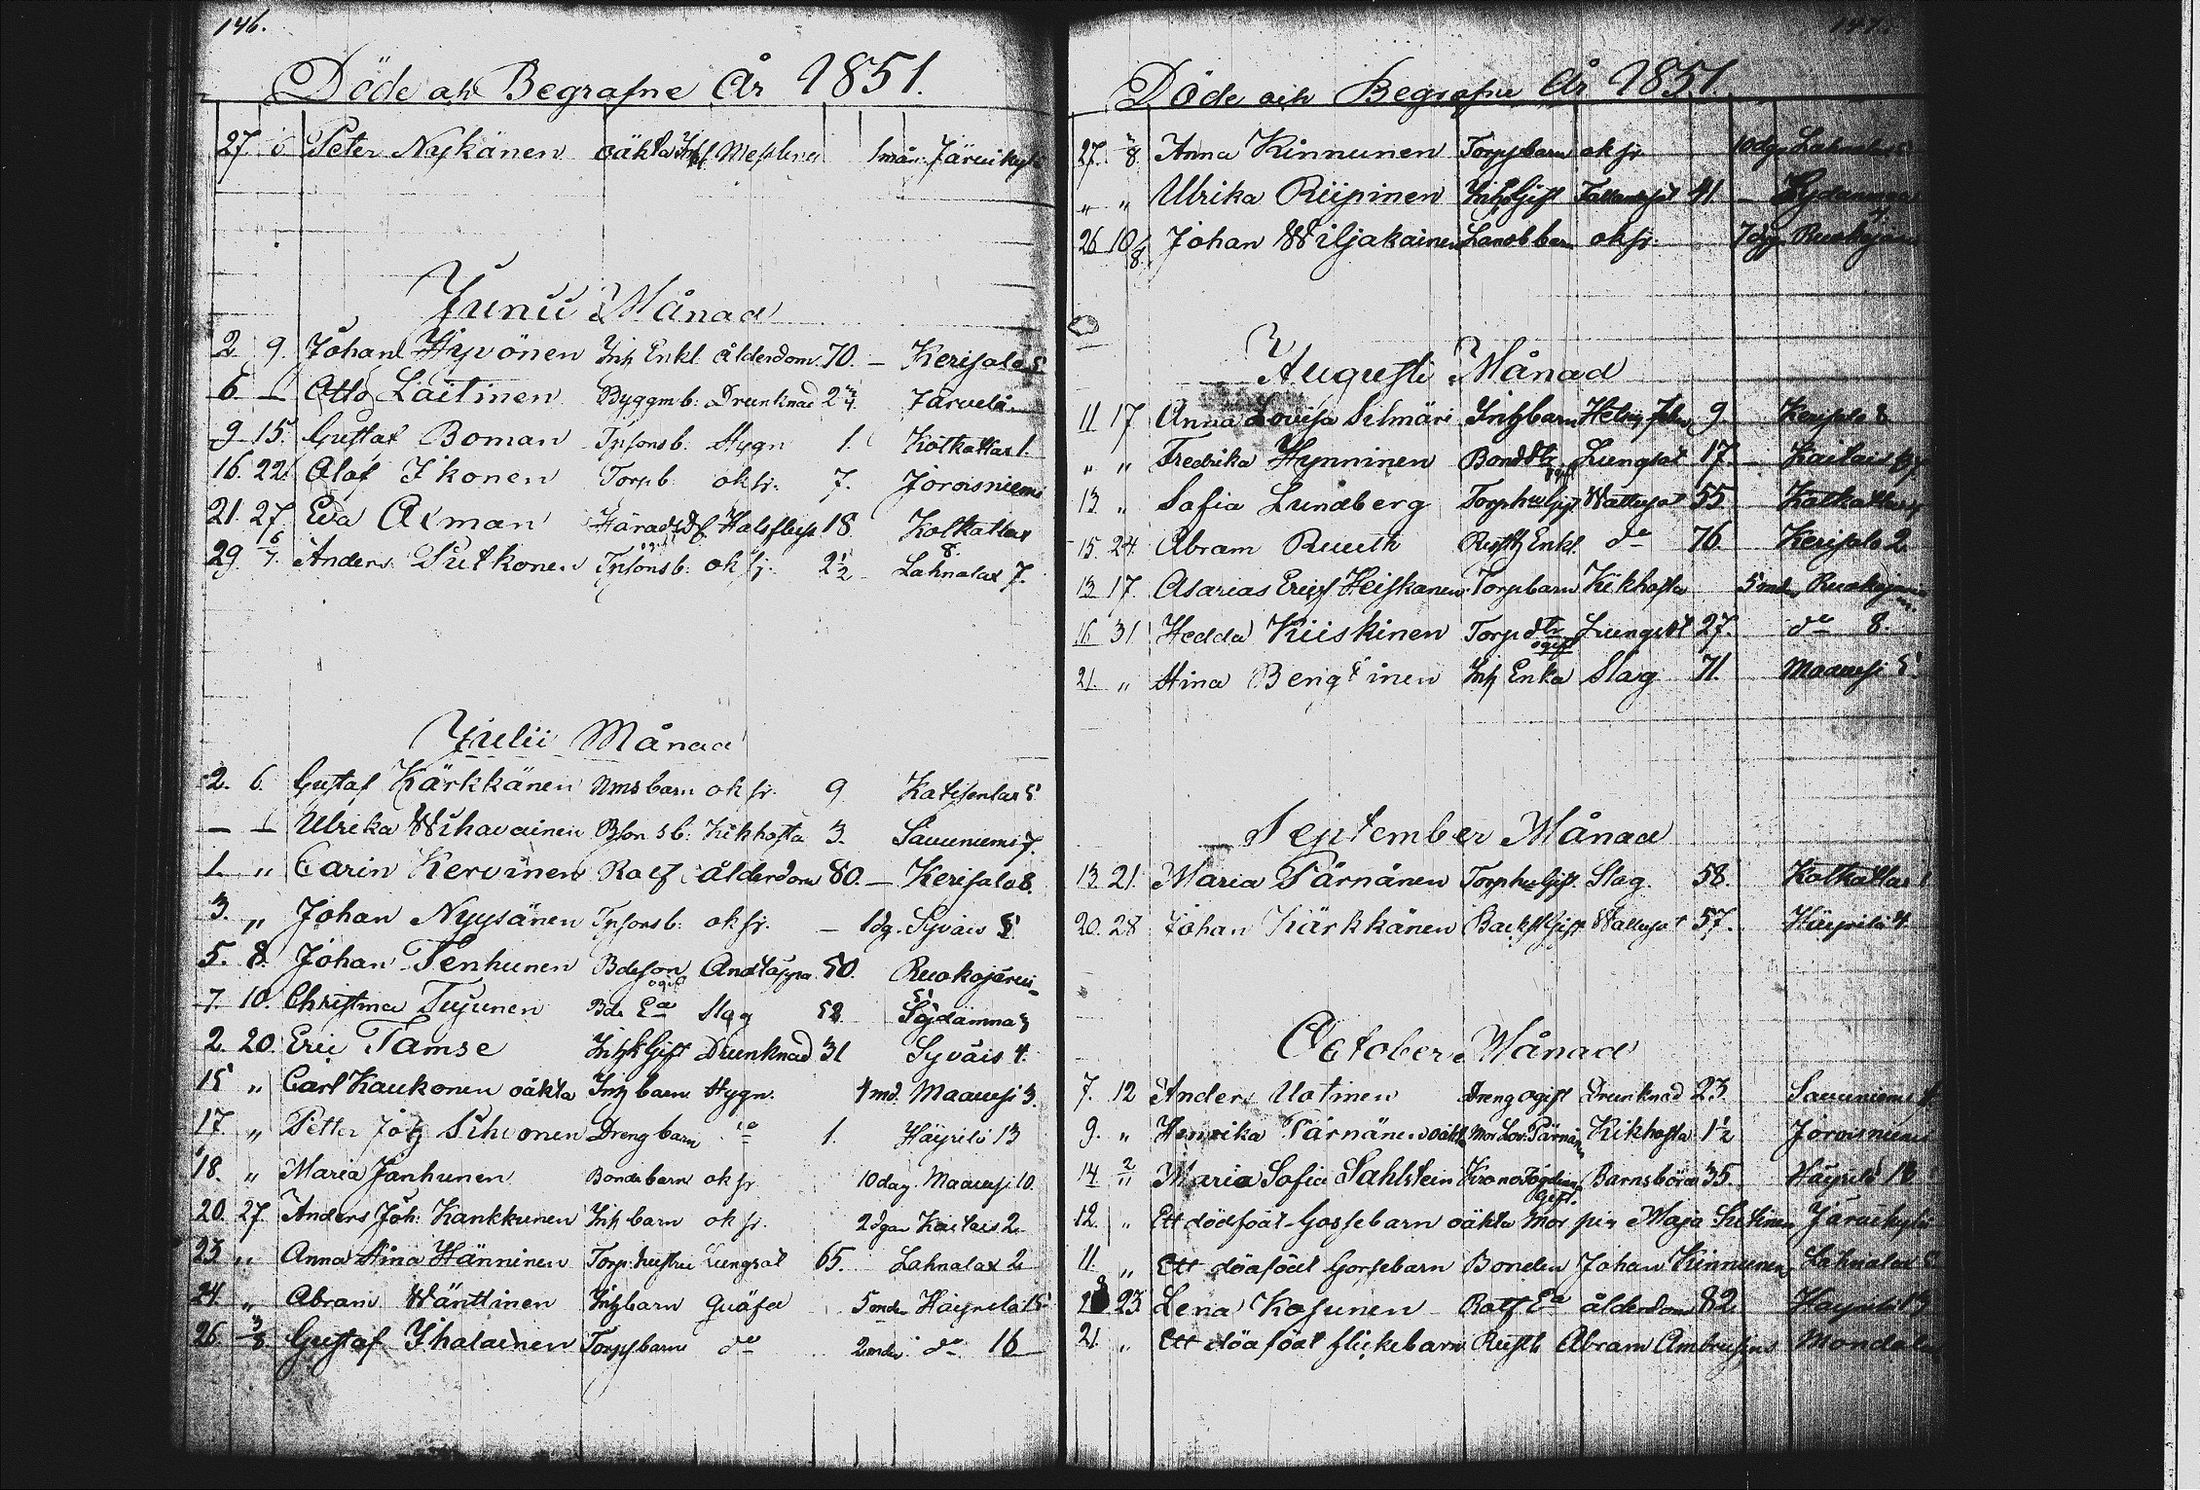 146.
Döde och Begrafne År 1851.
27 Peter Nykänen oäkta Messling 1 mån. Järvikylä
Junii Månad
2 9. Johan Hyvönen Inh Enkl. ålderdom 70. — Kerisalo 5
6 — Otto Laitinen Byggm b: Drunknad 2 3/4 Järvelä
9 15. Gustaf Boman Tpsons b: Stygn 1. Kotkatlax 1.
16. 22. Olof Ikonen Torp b. ok sj. 7. Joroisniemi
21. 27. Eva Axman Härads Df Halsflusn 18. Kotkatlax 8.
29. 6/7. Anders Putkonen Tpsons b: ok sj. 2 1/2 Lahnalax 7.
Julii Månad
2. 6. Gustaf Kärkkänen Nms barn ok sj. 9. Katisenlax 5
— — Ulrika Wihavainen Bson s b: Kikhosta 3. Sauuniemi 7.
1. " Carin Kervinen Ro ålderdom 80. — Kerisalo 8.
3. " Johan Nyysänen Tpsons b: ok sj. — 1 dg. Syväis 5
5. 8. Johan Tenhunen Bdeson ogift Andtäppa 50. Ruokojärvi 5
7. 10. Christina Tujunen Bde Ea Slag 52. Sydänma 3
2. 20. Eric Tamse Inh k Gift Drunknad 31 Syväis 4.
15 " Carl Kaukonen oäkta Inh barn Stygn. 4 md. Maavesi 3.
17. " Petter Joh Sihvonen Dreng barn do 1. Häyrilä 13
18. " Maria Janhunen Bonde barn ok sj. 10 dag. Maavesi 10.
20. 27. Anders Joh: Kankkunen Inh barn ok sj. 2 dgar Kaitais 2
23 " Anna Stina Hänninen Torp. hustru Lungsot 65. Lahnalax 2
24. " Abram Wänttinen Inh barn Quäfd 5 mdr Häyrilä 15
26 3/8. Gustaf Ihalainen Torp barn do 2 mdr do 16
147.
Döde och Begrafne År 1851.
27. 3/8 Anna Kinnunen Torp barn ok sj. 10 dgr Lahnalax
" " Ulrika Riipinen Inh Gift Fallandesot 41. — Sydänmaa
26 10/8 Johan Wiljakainen Landb barn ok sj. 7 dgr. Ruokojärvi
Augusti Månad
11 17. Anna Lovisa Silmäri Inh barn 9. Kerisalo 8
" " Fredrika Hynninen Bond dtr ogift Lungsot 17. — Kaitais
13 " Sofia Lundberg Torph Gift Wattusot 55 Kotkatlax
15. 24. Abram Ruuth Rusth Enkl. do 76. Kerisalo 2.
13 17. Asarias Eric Heiskanen Torpbarn Kikhosta 5 mdr Ruokojärvi
16 31 Hedda Kiiskinen Torp dtr ogift Lungsot 27. do 8.
21. " Stina Bengtinen Inh Enka Slag 71. Maavesi 5
September Månad
13. 21. Maria Pärnänen Torph Gift. Slag. 58. Kotkatlax
20. 28 Johan Kärkkänen Backst Gift Wattusot 57. Häyrilä 4.
October Månad
7. 12 Anders Uotinen Dreng ogift Drunknad 23 Sauuniemi
9. " Henrika Pärnänen oäkta Mor Lov. Pärnän Kikhosta 1 1/2 Joroisniemi
14. 2/11 Maria Sofia Sahlstein Gift. Barnsbörd 35. Häyrilä 18
12. " Ett dödfödt Gossebarn oäkta Mor pig Maja Järvikylä
11. " Ett dödfödt Gossebarn Bonden Johan Kinnunens Lahnalax
18 23 Lena Kosunen Rotf Ea ålderdom 82 Häyrilä 13
21. " Ett dödfödt flickebarn Rusth Abram Mondala